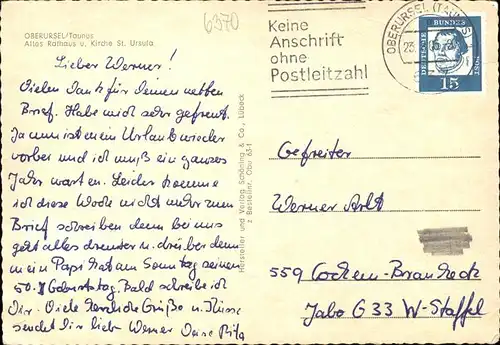 OBERURSEL/Taunus
Altes Rathaus u. Kirche St. Ursula
6370
Keine
Anschrift
ohne
Postleitzahl
OBERURSEL (TAUNUS)
DEUTSCHE BUNDESPOST
15
Lieber Werner!
Vielen Dank für deinen netten
Brief. Habe mich sehr gefreut.
Ja nun ist ein Urlaub wieder
vorbei und ich muß ein ganzes
Jahr warten. Leider komme
ich diese Woche nicht mehr zum
Brief schreiben denn bei uns
geht alles drunter u. drüber denn
mein Papi hat am Sonntag seinen
50. Geburtstag. Bald schreibe ich
Dir. Viele herzliche Grüße u. Küsse
sendet Dir lieb Werner Deine Rita
Hersteller und Verlag Schöning & Co., Lübeck
z Bestellnr. Obu 63-1
Gefreiter
Werner Arlt
559 Cochem-Brauheck
Jabo G 33 W-Staffel